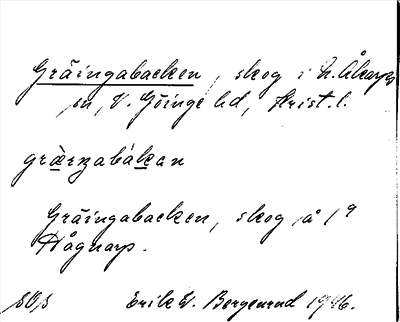 Gräingabacken, skog i N. Åkarps
sn, V. Göinge hd, Krist. l.
Gräingabacken, skog på 1⁹
Hågnarp.
Erik W. Bergenrud 1946.